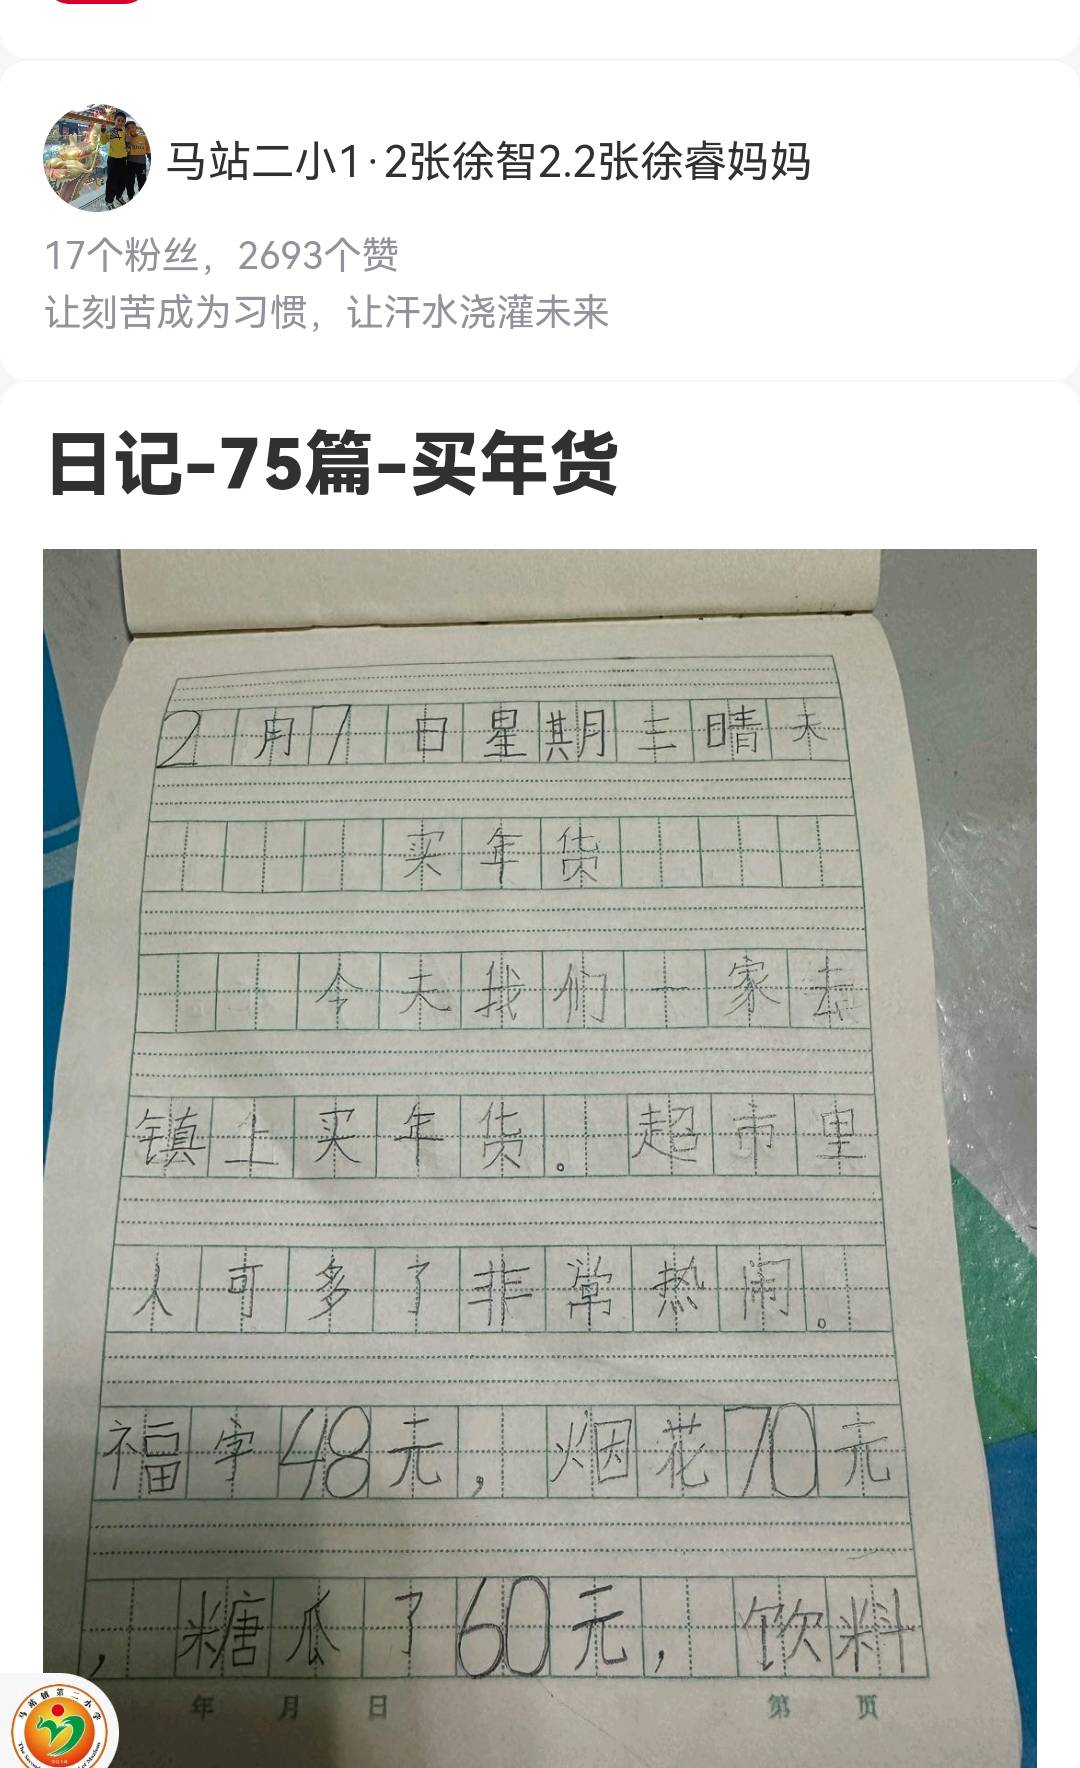 马站二小1·2张徐智2.2张徐睿妈妈
17个粉丝，2693个赞
让刻苦成为习惯，让汗水浇灌未来
日记-75篇-买年货
2月7日星期三晴天
买年货
今天我们一家去
镇上买年货。超市里
人可多了非常热闹。
福字48元，烟花70元
，糖瓜了60元，饮料
年 月 日 第 页
马站镇第二小学